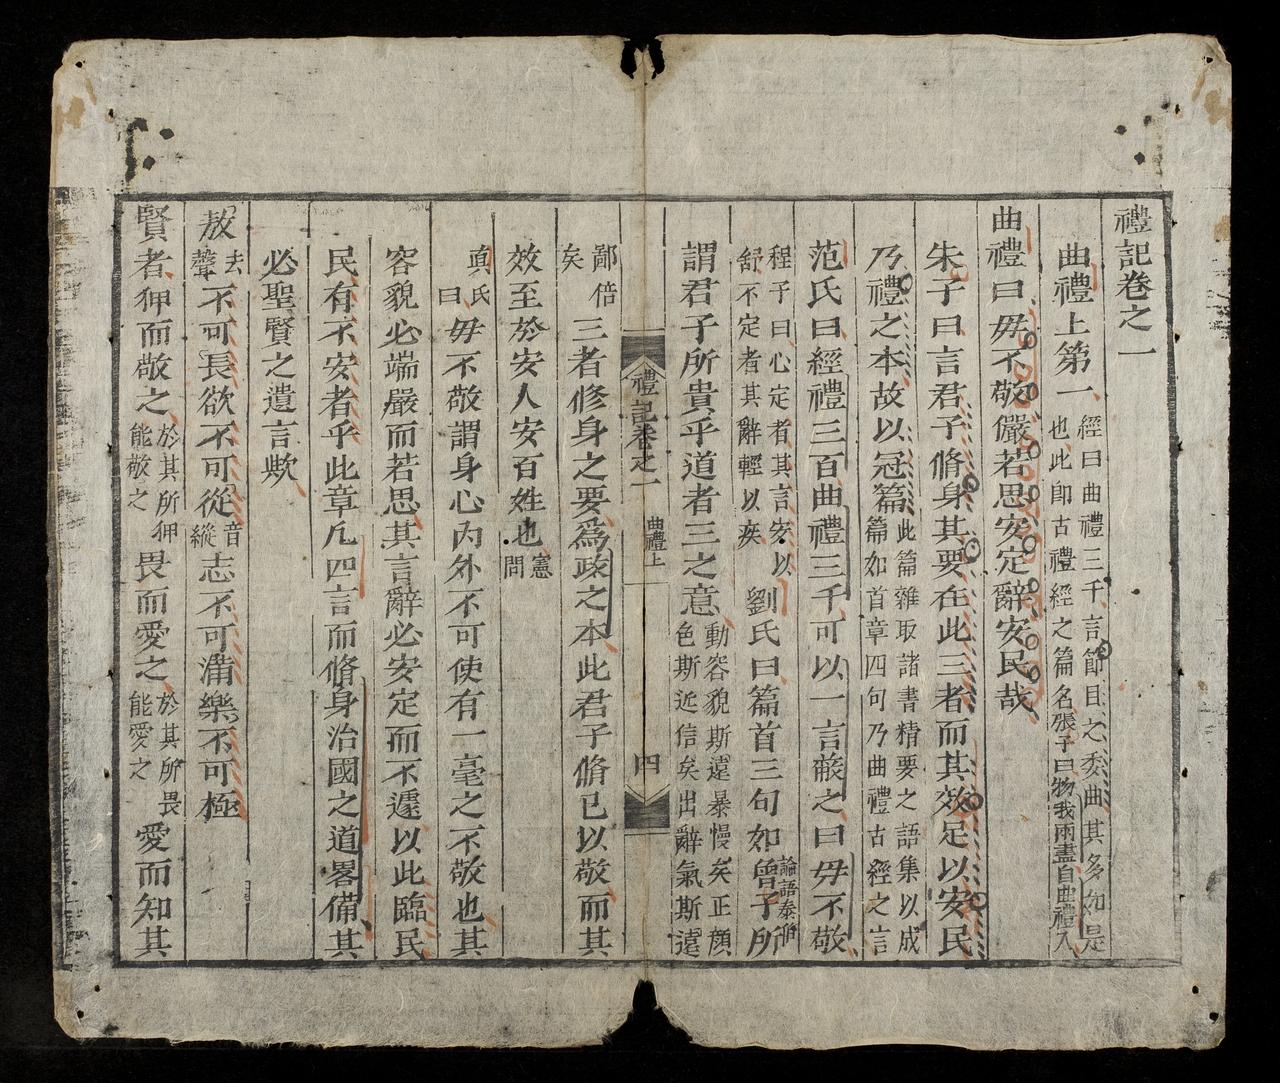 禮記卷之一
曲禮上第一經曰曲禮三千言節目之委曲其多如是
也此卽古禮經之篇名張子曰物我兩盡自曲禮入
曲禮曰毋不敬儼若思安定辭安民哉
朱子曰言君子脩身其要在此三者而其效足以安民
乃禮之本故以冠篇此篇雜取諸書精要之語集以成
篇如首章四句乃曲禮古經之言
范氏曰經禮三百曲禮三千可以一言蔽之曰毋不敬
程子曰心定者其言安以
舒不定者其辭輕以疾劉氏曰篇首三句如曾子論語泰伯所
謂君子所貴乎道者三之意動容貌斯遠暴慢矣正顔
色斯近信矣出辭氣斯遠
禮記卷之一 曲禮上 四
鄙倍
矣三者修身之要爲政之本此君子脩已以敬而其
效至於安人安百姓也憲
問
真氏
曰毋不敬謂身心內外不可使有一毫之不敬也其
容貌必端嚴而若思其言辭必安定而不遽以此臨民
民有不安者乎此章凡四言而脩身治國之道畧備其
必聖賢之遺言歟
敖去
聲不可長欲不可從音
縱志不可滿樂不可極
賢者狎而敬之於其所狎
能敬之畏而愛之於其所畏
能愛之愛而知其